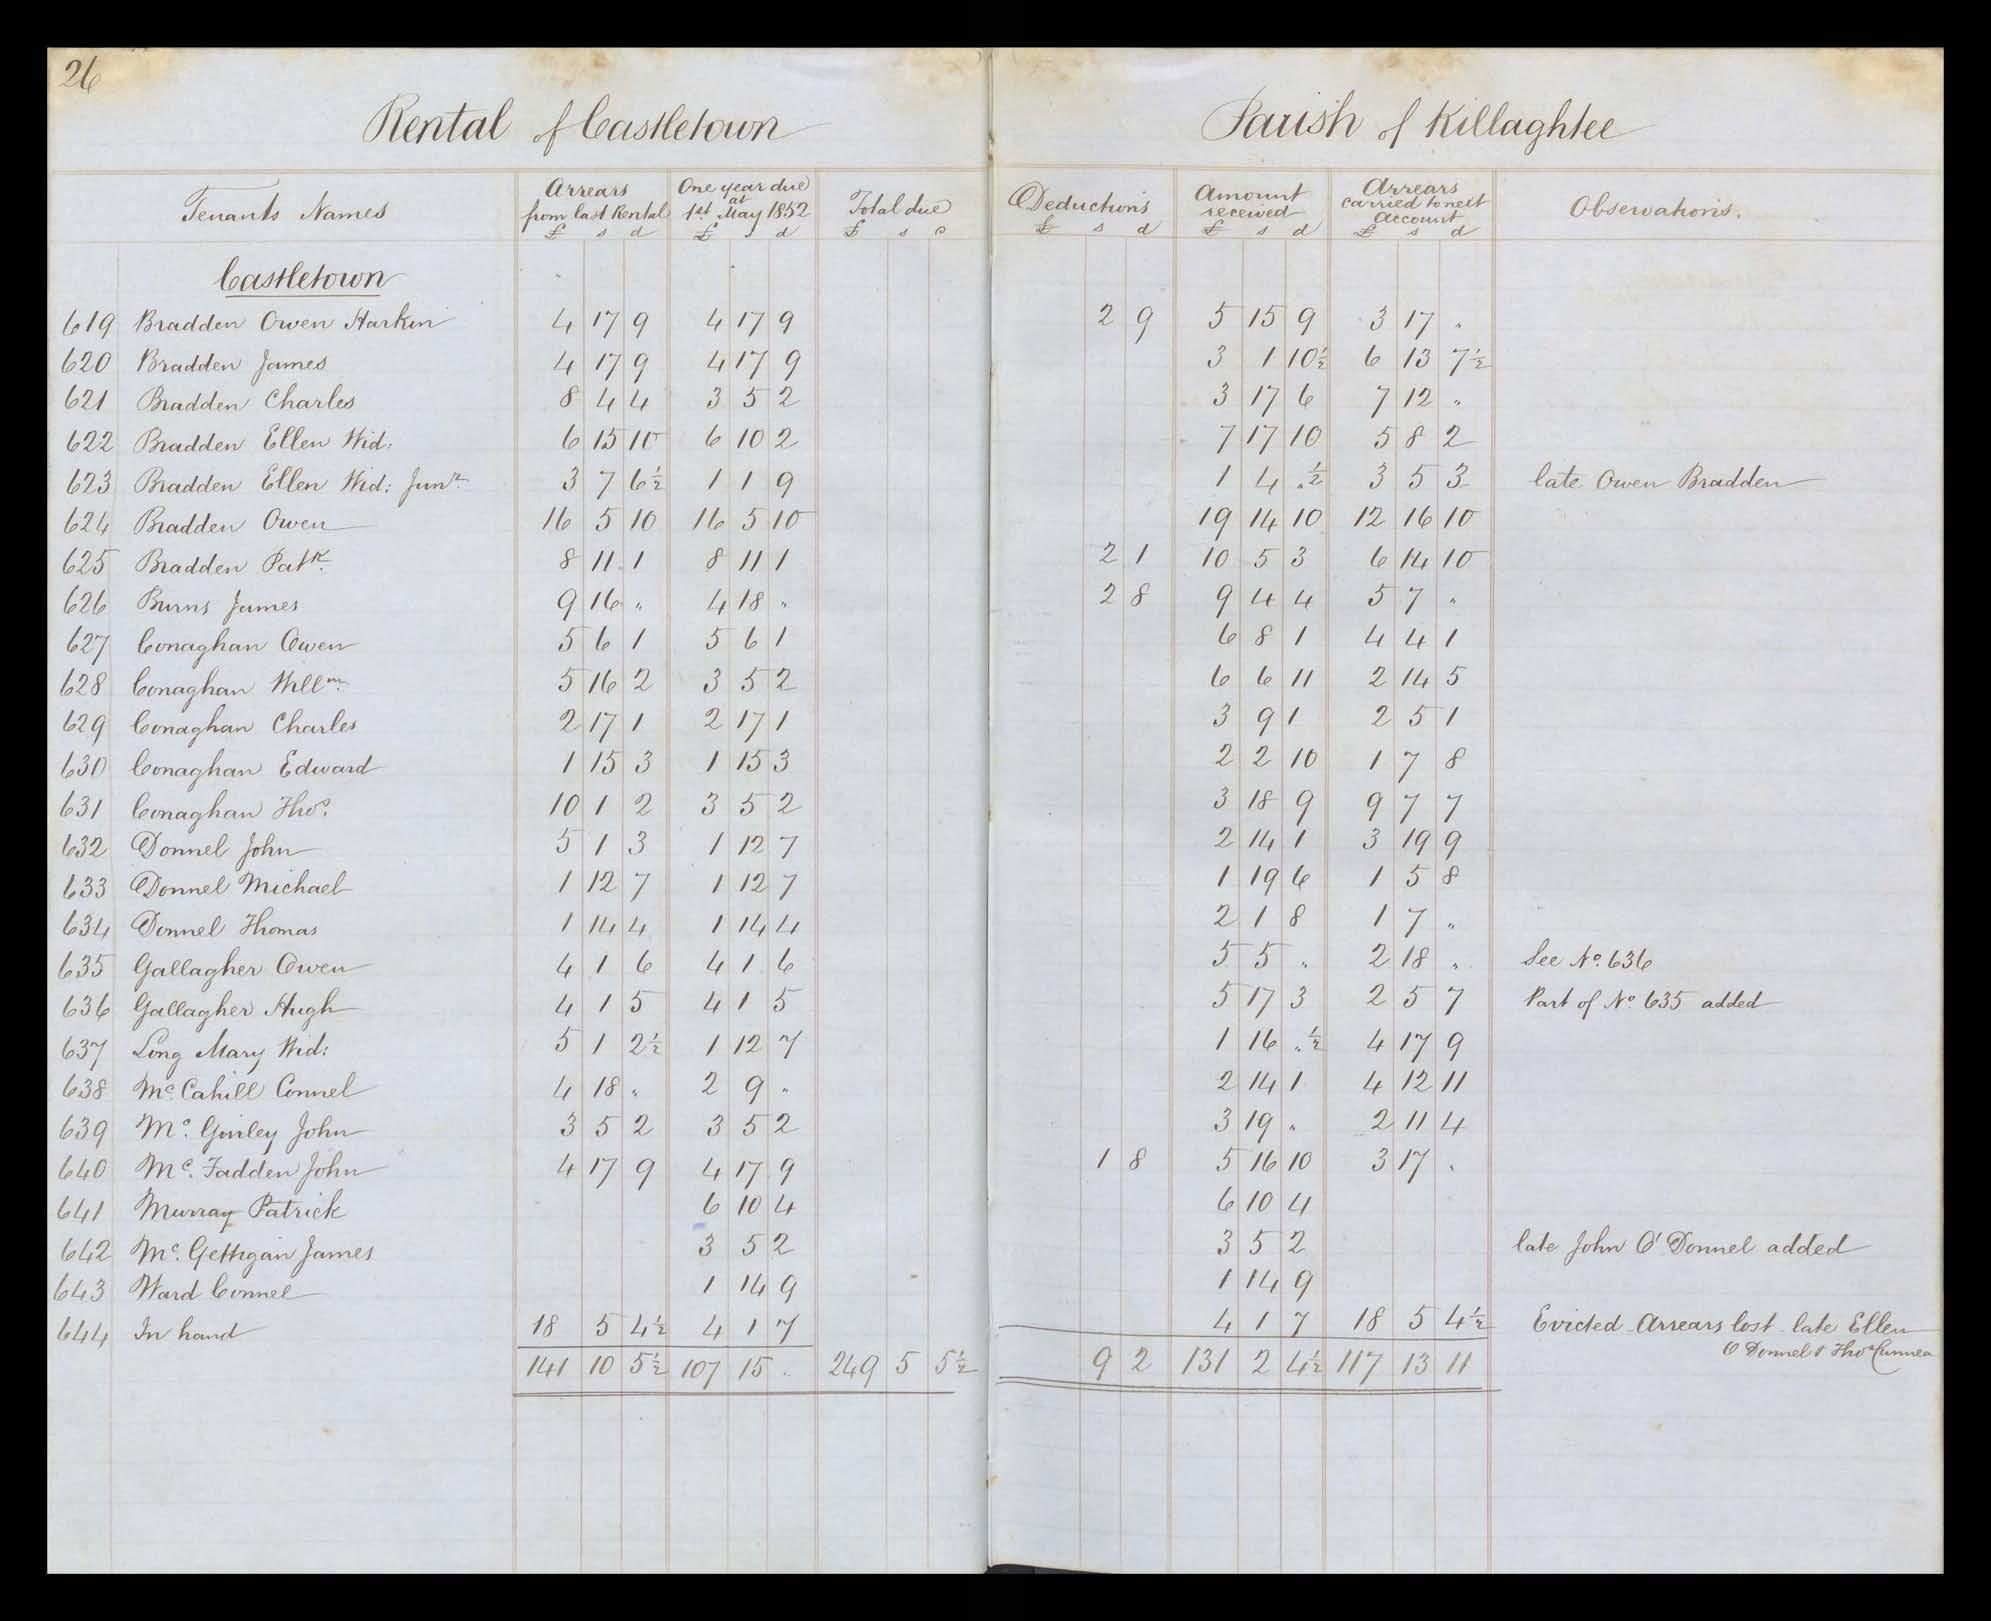 26
Rental of Castletown Parish of Killaghtee
Tenants Names Arrears from last Rental £ s d One year due at 1st May 1852 £ s d Total due £ s d Deductions £ s d Amount received £ s d Arrears carried to next account £ s d Observations.
Castletown
619 Bradden Owen Harkin 4 17 9 4 17 9 2 9 5 15 9 3 17 "
620 Bradden James 4 17 9 4 17 9 3 1 10½ 6 13 7½
621 Bradden Charles 8 4 4 3 5 2 3 17 6 7 12 "
622 Bradden Ellen Wid: 6 15 10 6 10 2 7 17 10 5 8 2
623 Bradden Ellen Wid: Junr. 3 7 6½ 1 1 9 1 4 "½ 3 5 3 late Owen Bradden
624 Bradden Owen 16 5 10 16 5 10 19 14 10 12 16 10
625 Bradden Patk. 8 11 1 8 11 1 2 1 10 5 3 6 14 10
626 Burns James 9 16 " 4 18 " 2 8 9 4 4 5 7 "
627 Conaghan Owen 5 6 1 5 6 1 6 8 1 4 4 1
628 Conaghan Willm. 5 16 2 3 5 2 6 6 11 2 14 5
629 Conaghan Charles 2 17 1 2 17 1 3 9 1 2 5 1
630 Conaghan Edward 1 15 3 1 15 3 2 2 10 1 7 8
631 Conaghan Thos. 10 1 2 3 5 2 3 18 9 9 7 7
632 Donnel John 5 1 3 1 12 7 2 14 1 3 19 9
633 Donnel Michael 1 12 7 1 12 7 1 19 6 1 5 8
634 Donnel Thomas 1 14 4 1 14 4 2 1 8 1 7 "
635 Gallagher Owen 4 1 6 4 1 6 5 5 " 2 18 " See No. 636
636 Gallagher Hugh 4 1 5 4 1 5 5 17 3 2 5 7 Part of No. 635 added
637 Long Mary Wid: 5 1 2½ 1 12 7 1 16 "½ 4 17 9
638 Mc. Cahill Connel 4 18 " 2 9 " 2 14 1 4 12 11
639 Mc. Ginley John 3 5 2 3 5 2 3 19 " 2 11 4
640 Mc. Fadden John 4 17 9 4 17 9 1 8 5 16 10 3 17 "
641 Murray Patrick 6 10 4 6 10 4
642 Mc. Gettigan James 3 5 2 3 5 2 late John O'Donnel added
643 Ward Connel 1 14 9 1 14 9
644 In hand 18 5 4½ 4 1 7 4 1 7 18 5 4½ Evicted Arrears lost late Ellen
O Donnel & Thos
141 10 5½ 107 15 " 249 5 5½ 9 2 131 2 4½ 117 13 11